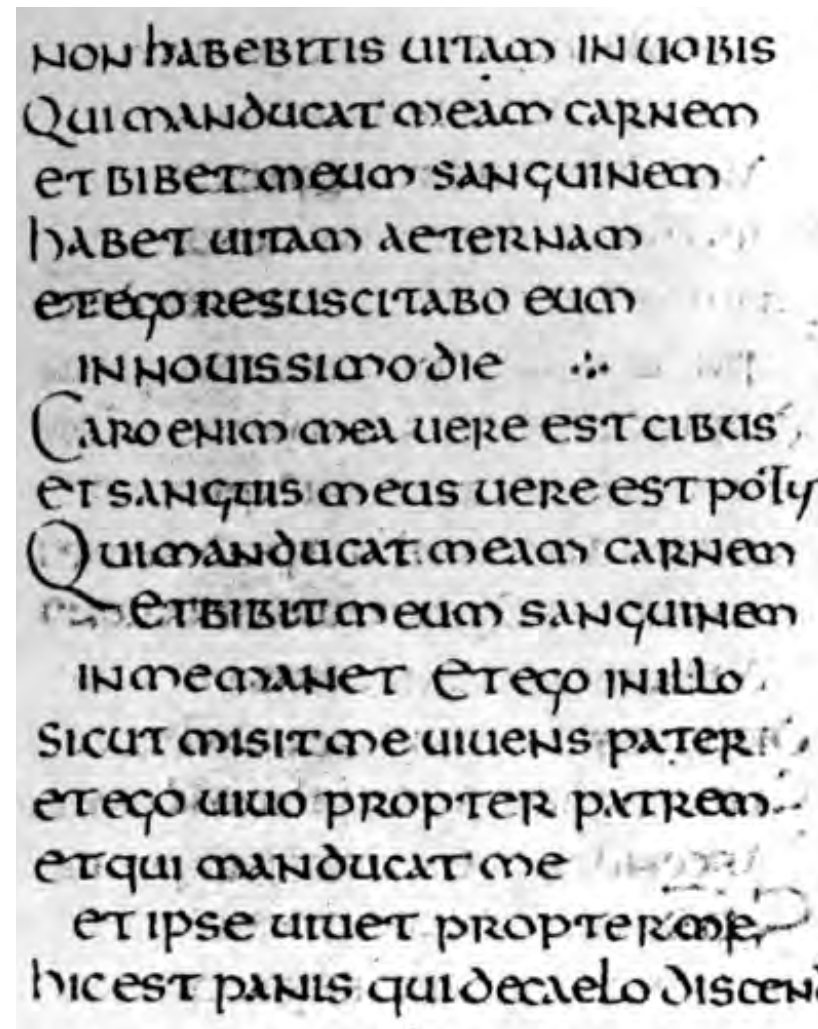 NON hABEBITIS UITAM IN UOBIS
QUI MANDUCAT MEAM CARNEM
ET BIBET MEUM SANGUINEM
hABET UITAM AETERNAM
ET EGO RESUSCITABO EUM
IN NOUISSIMO DIE
CARO ENIM MEA UERE EST CIBUS
ET SANGUIS MEUS UERE EST
QUI MANDUCAT MEAM CARNEM
ET BIBIT MEUM SANGUINEM
IN ME MANET ET EGO IN ILLO
SICUT MISIT ME UIUENS PATER
ET EGO UIUO PROPTER PATREM
ET QUI MANDUCAT ME
ET IPSE UIUET PROPTER ME
hIC EST PANIS QUI DE CAELO DISCEND